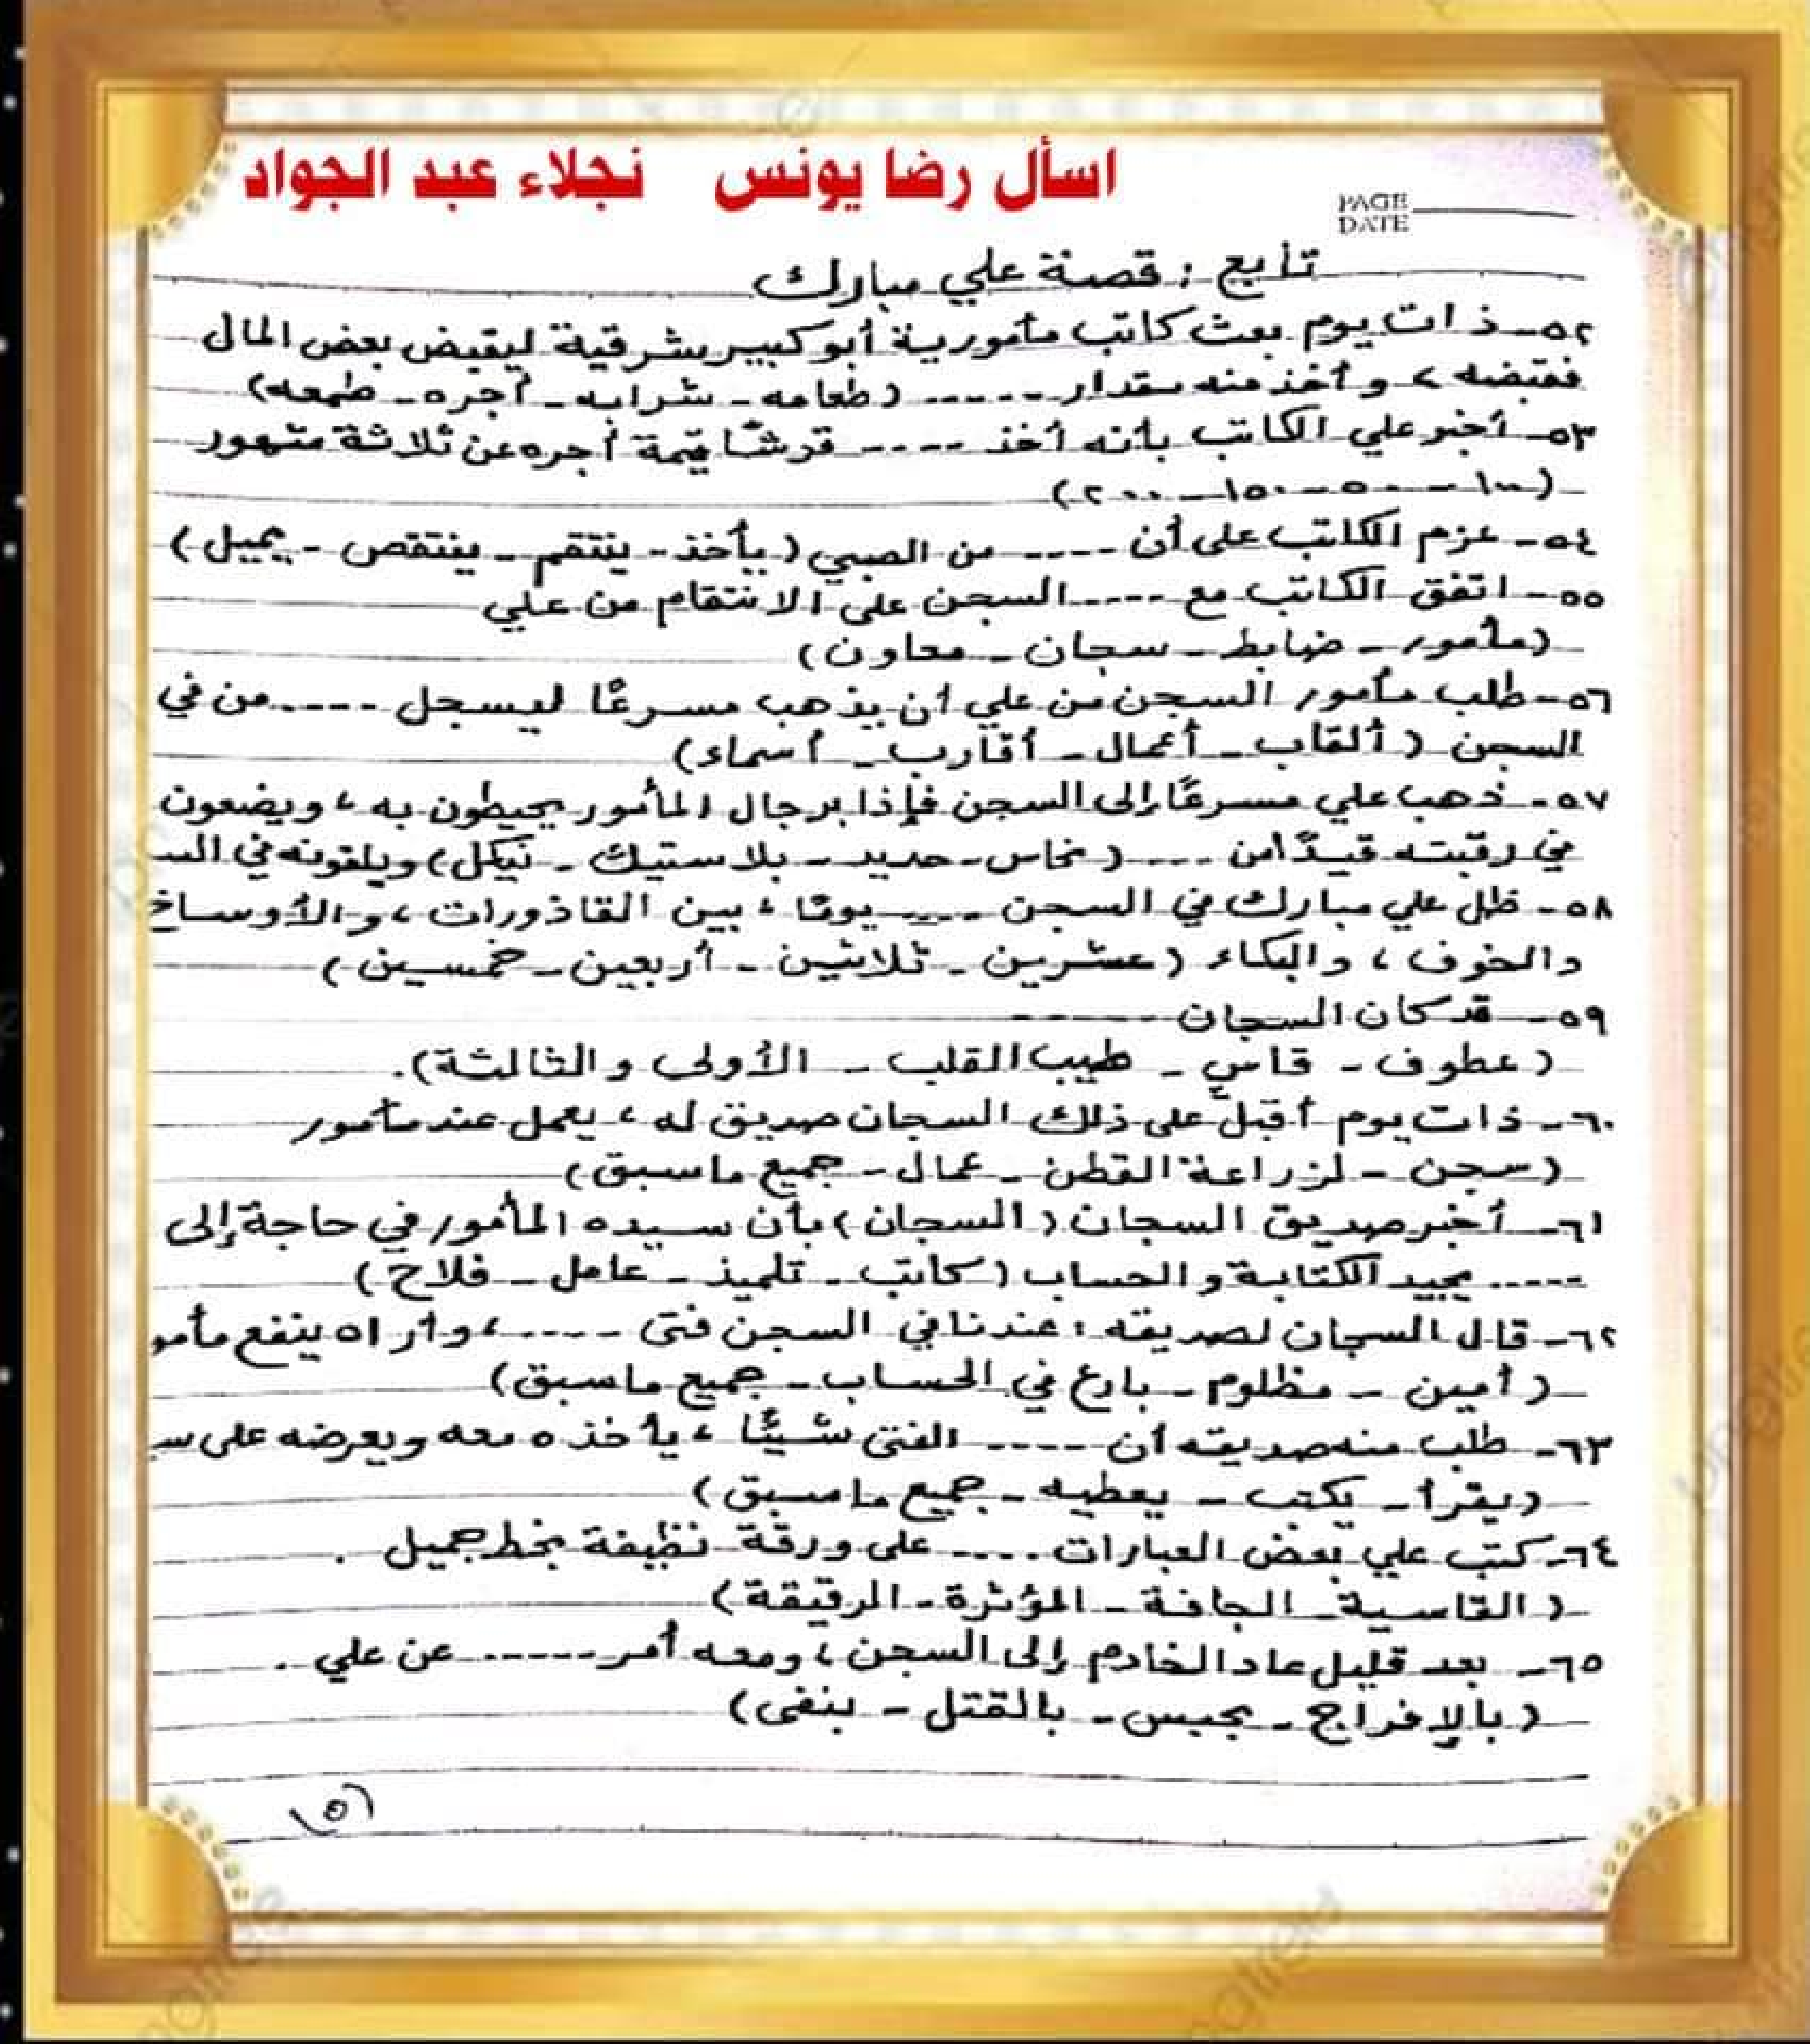 اسأل رضا يونس نجلاء عبد الجواد
PAGE
DATE
تابع : قصة علي مبارك
٥٢- ذات يوم بعث كاتب مأمورية أبو كبير شرقية ليقبض بعض المال
فقبضه ، وأخذ منه مقدار ------ (طعامه - شرابه - أجره - طمعه)
٥٣- أخبر علي الكاتب بأنه أخذ ---- قرشًا قيمة أجره عن ثلاثة شهور
(١٠٠ - ٥٠ - ١٥٠ - ٢٠٠)
٥٤- عزم الكاتب على أن ---- من الصبي (يأخذ - ينتقم - ينتقص - يميل)
٥٥- اتفق الكاتب مع ---- السجن على الانتقام من علي
(مأمور - ضابط - سجان - معاون)
٥٦- طلب مأمور السجن من علي أن يذهب مسرعًا ليسجل ---- من في
السجن (ألقاب - أعمال - أقارب - أسماء)
٥٧- ذهب علي مسرعًا إلى السجن فإذا برجال المأمور يحيطون به ، ويضعون
في رقبته قيدًا من ---- (نحاس - حديد - بلاستيك - نيكل) ويلقونه في الس
٥٨- ظل علي مبارك في السجن ---- يومًا ، بين القاذورات ، والأوساخ
والخوف ، والبكاء (عشرين - ثلاثين - أربعين - خمسين)
٥٩- قد كان السجان ------
(عطوف - قاسٍ - طيب القلب - الأولى والثالثة).
٦٠- ذات يوم أقبل على ذلك السجان صديق له ، يعمل عند مأمور
(سجن - لزراعة القطن - عمال - جميع ما سبق)
٦١- أخبر صديق السجان (السجان) بأن سيده المأمور في حاجة إلى
----- يجيد الكتابة والحساب (كاتب - تلميذ - عامل - فلاح)
٦٢- قال السجان لصديقه : عندنا في السجن فتى ---- ، وأراه ينفع مأمو
(أمين - مظلوم - بارع في الحساب - جميع ما سبق)
٦٣- طلب منه صديقه أن ---- الفتى شيئًا ، يأخذه معه ويعرضه على سي
(يقرأ - يكتب - يعطيه - جميع ما سبق)
٦٤- كتب علي بعض العبارات ---- على ورقة نظيفة بخط جميل .
(القاسية - الجافة - المؤثرة - الرقيقة)
٦٥- بعد قليل عاد الخادم إلى السجن ، ومعه أمر ------ عن علي .
(بالإفراج - بحبس - بالقتل - بنفى)
(٥)